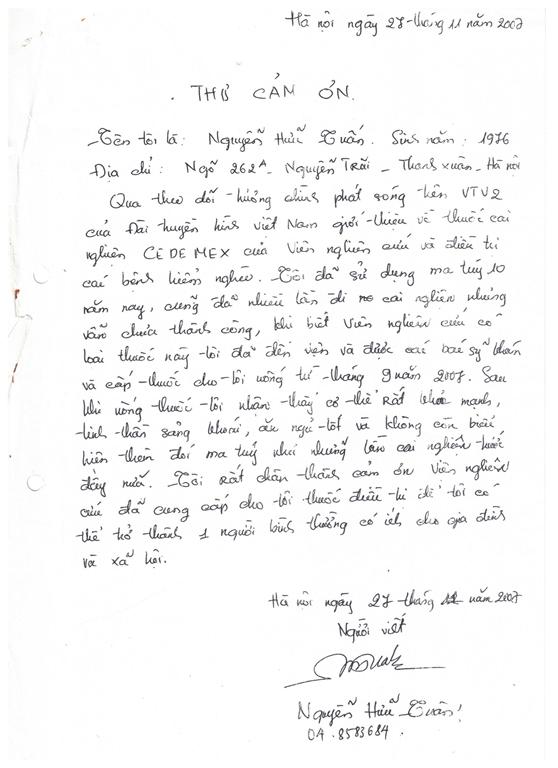 Hà nội ngày 27 tháng 11 năm 2007
THƯ CẢM ƠN.
Tên tôi là: Nguyễn Hữu Tuấn. Sinh năm: 1976
Địa chỉ: Ngõ 262A - Nguyễn Trãi - Thanh xuân - Hà nội
Qua theo dõi chương chình phát sóng trên VTV2
của Đài truyền hình Việt Nam giới thiệu về thuốc cai
nghiện CEDEMEX của Viện nghiên cứu và điều trị
các bệnh hiểm nghèo. Tôi đã sử dụng ma tuý 10
năm nay, cũng đã nhiều lần đi cai nghiện nhưng
vẫn chưa thành công, khi biết Viện nghiên cứu có
loại thuốc này tôi đã đến viện và được các bác sỹ khám
và cấp thuốc cho tôi uống từ tháng 9 năm 2007. Sau
khi uống thuốc tôi nhận thấy cơ thể rất khoẻ mạnh,
tinh thần sảng khoái, ăn ngủ tốt và không còn biểu
hiện thèm đói ma tuý như những lần cai nghiện trước
đây nữa. Tôi rất chân thành cảm ơn Viện nghiên
cứu đã cung cấp cho tôi thuốc điều trị để tôi có
thể trở thành 1 người bình thường có ích cho gia đình
và xã hội.
Hà nội ngày 27 tháng 11 năm 2007
Người viết
Nguyễn Hữu Tuấn!
04.8583684.